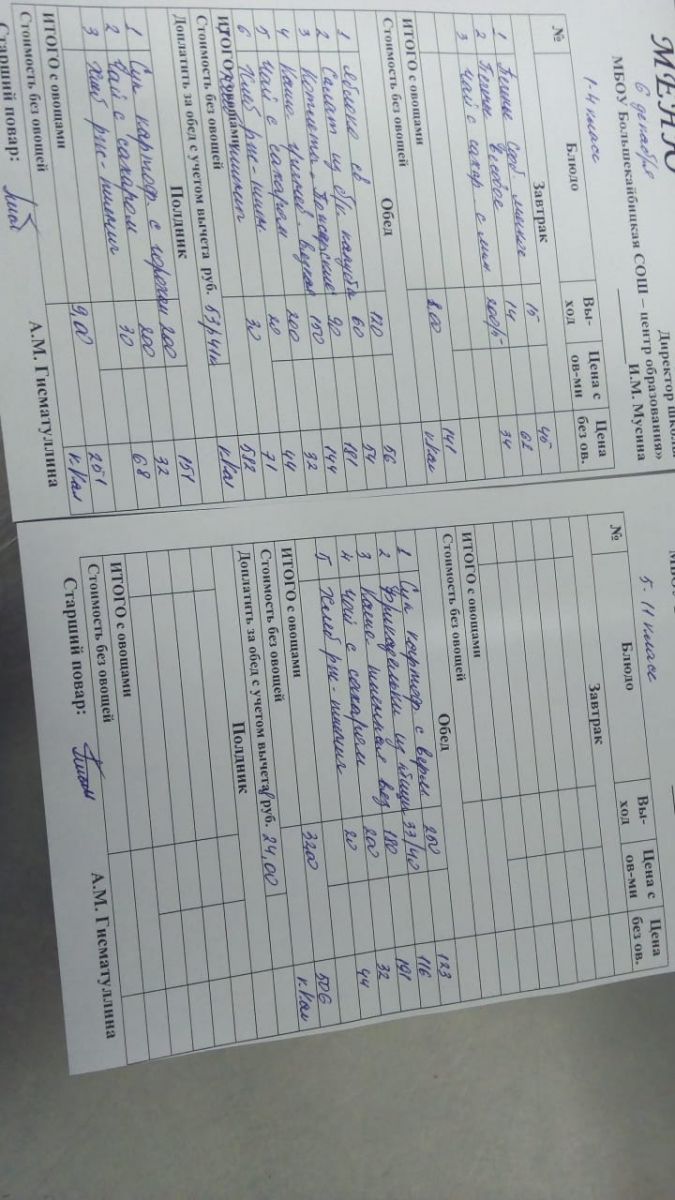 МЕНЮ
Директор школы
6 декабря
МБОУ Большекайбицкая СОШ – центр образования»
И.М. Мусина
1-4 класс
№ Блюдо Вы-ход Цена с ов-ми Цена без ов.
Завтрак
1 15 45
2 14 62
3 Чай с сахар с 200/5 34
ИТОГО с овощами 141
Стоимость без овощей 8,00 к кал
Обед
1 Яблоко св 120 56
2 Салат из б/к капусты 60 54
3 Котлета 90 181
4 Каша 150 144
5 Чай с сахаром 200 32
6 Хлеб рж-пшен 20 44
30 71
ИТОГО с овощами 582
Стоимость без овощей к кал
Доплатить за обед с учетом вычета руб.
Полдник
1 Суп картоф с горохом 200 151
2 Чай с сахаром 200 32
3 Хлеб рж-пшенич 30 68
ИТОГО с овощами 251
Стоимость без овощей 9,00 к кал
Старший повар: А.М. Гисматуллина
5-11 класс
№ Блюдо Вы-ход Цена с ов-ми Цена без ов.
Завтрак
ИТОГО с овощами
Стоимость без овощей
Обед
1 Суп картоф с верм 200 123
2 Фрикадельки из птицы 33/40 116
3 Каша 180 191
4 Чай с сахаром 200 32
5 Хлеб рж-пшенич 20 44
ИТОГО с овощами 506
Стоимость без овощей к кал
Доплатить за обед с учетом вычета руб. 24,00
Полдник
ИТОГО с овощами
Стоимость без овощей
Старший повар: А.М. Гисматуллина